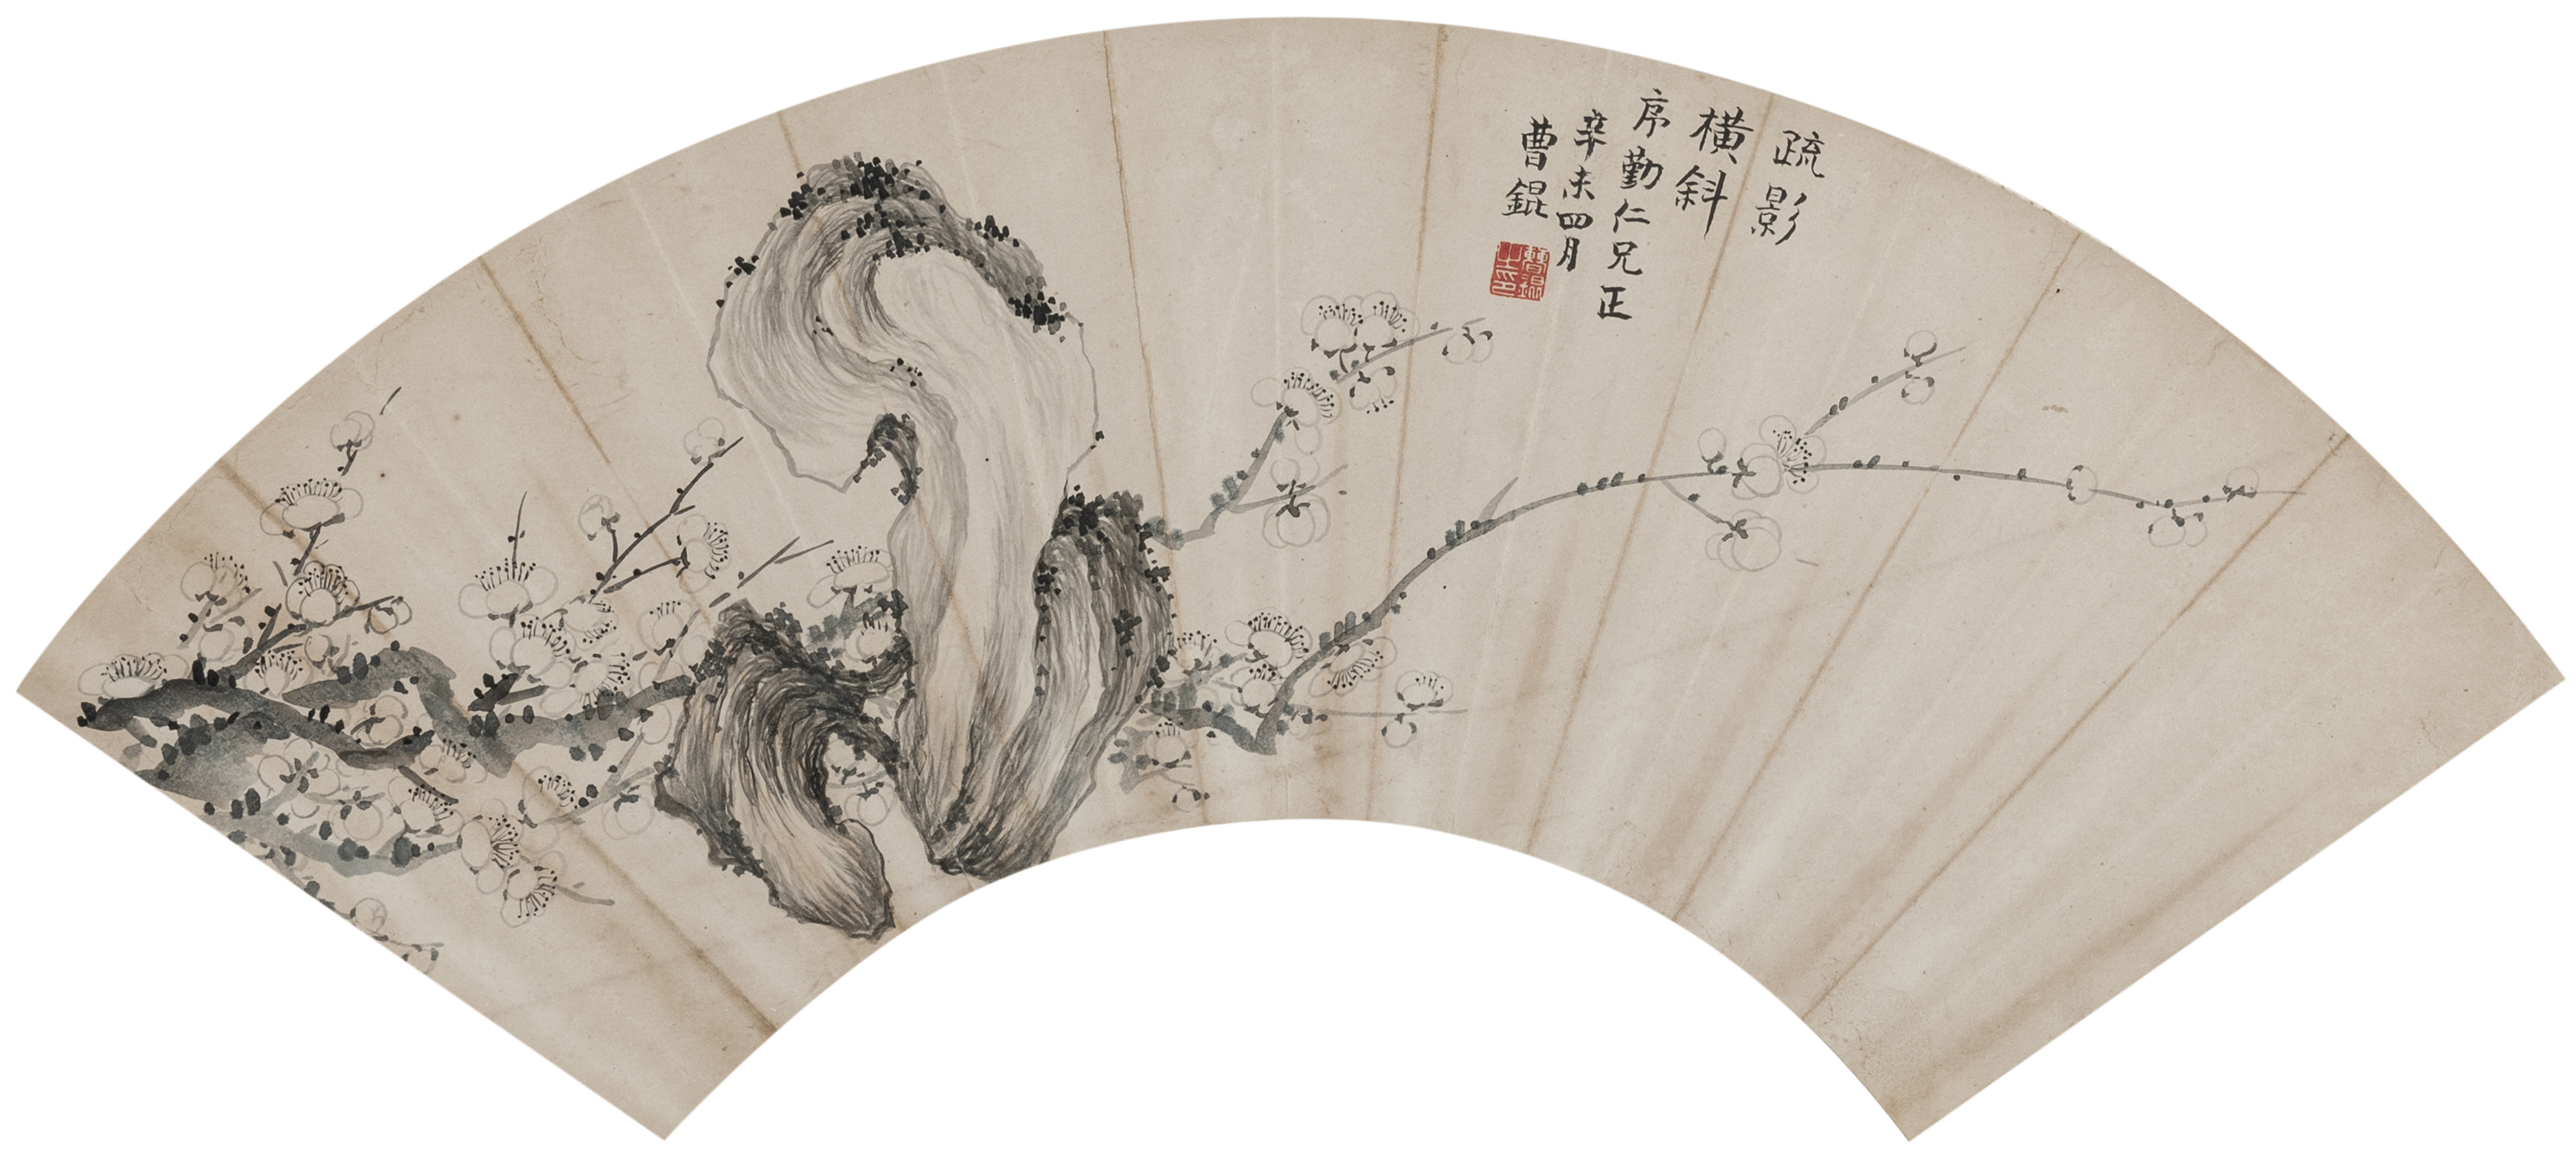 疏影
橫斜
序勤仁兄正
辛未四月
曹錕
曹錕之印